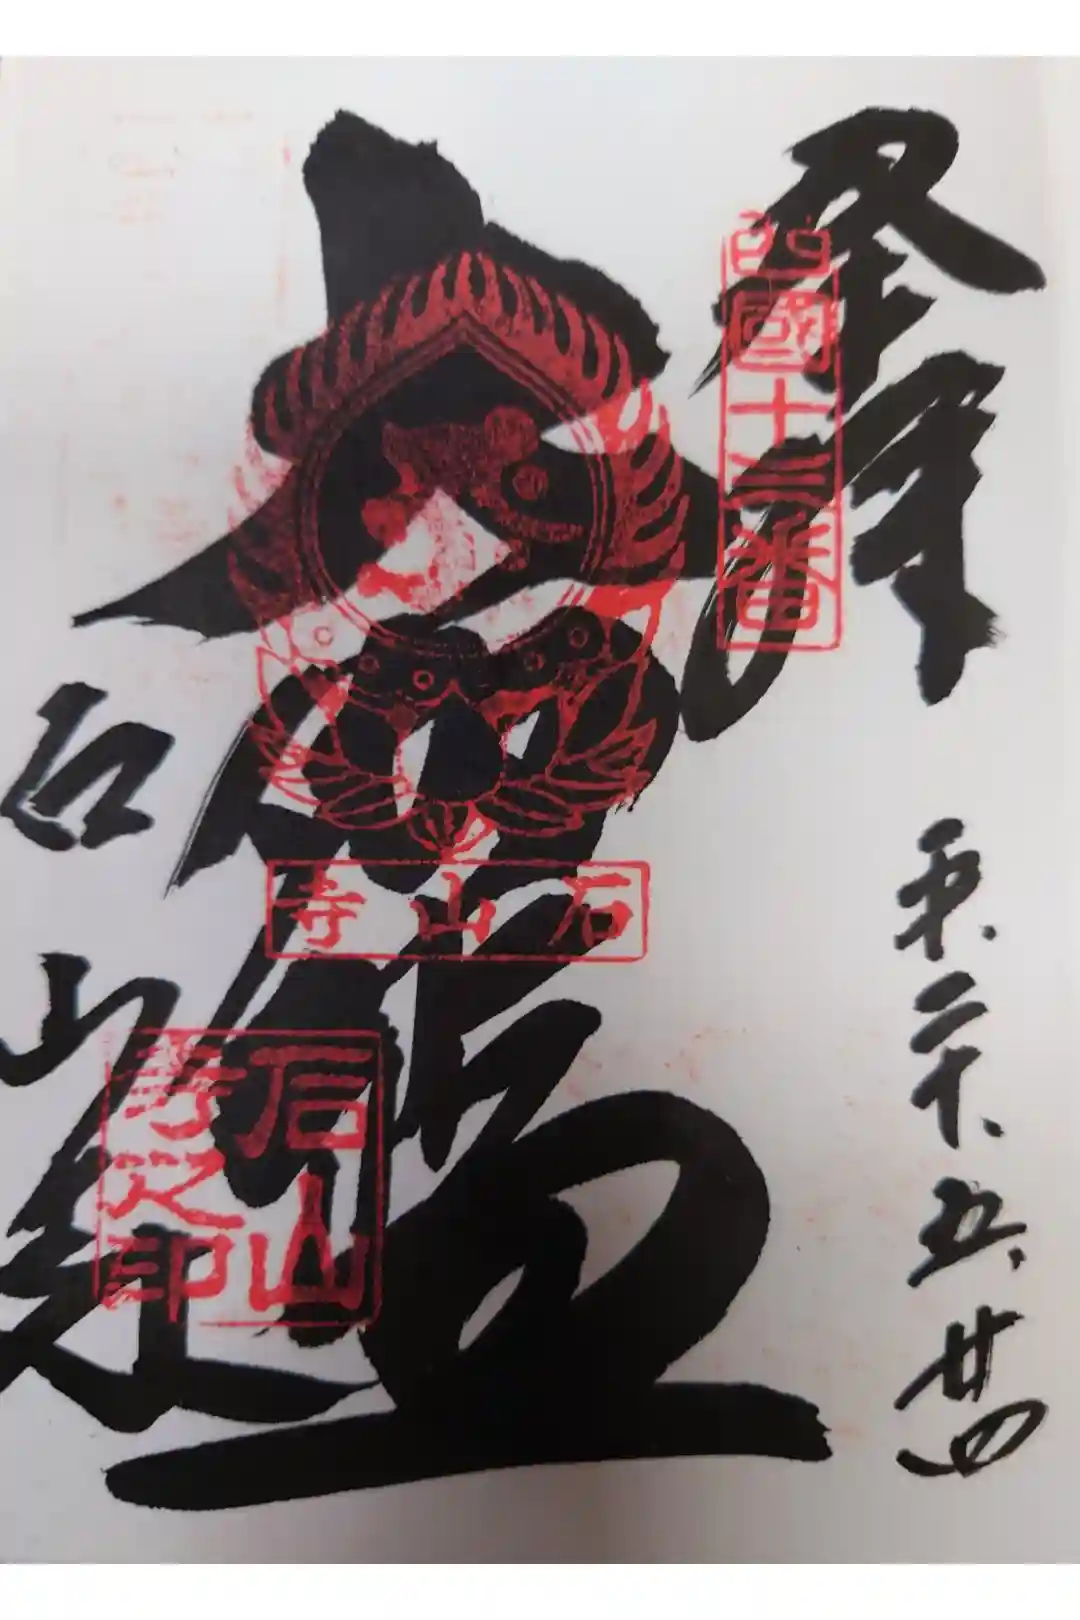 奉拝
西國十三番
平二十、五、廿四
大伽藍
石山寺
石山寺
石山寺之印